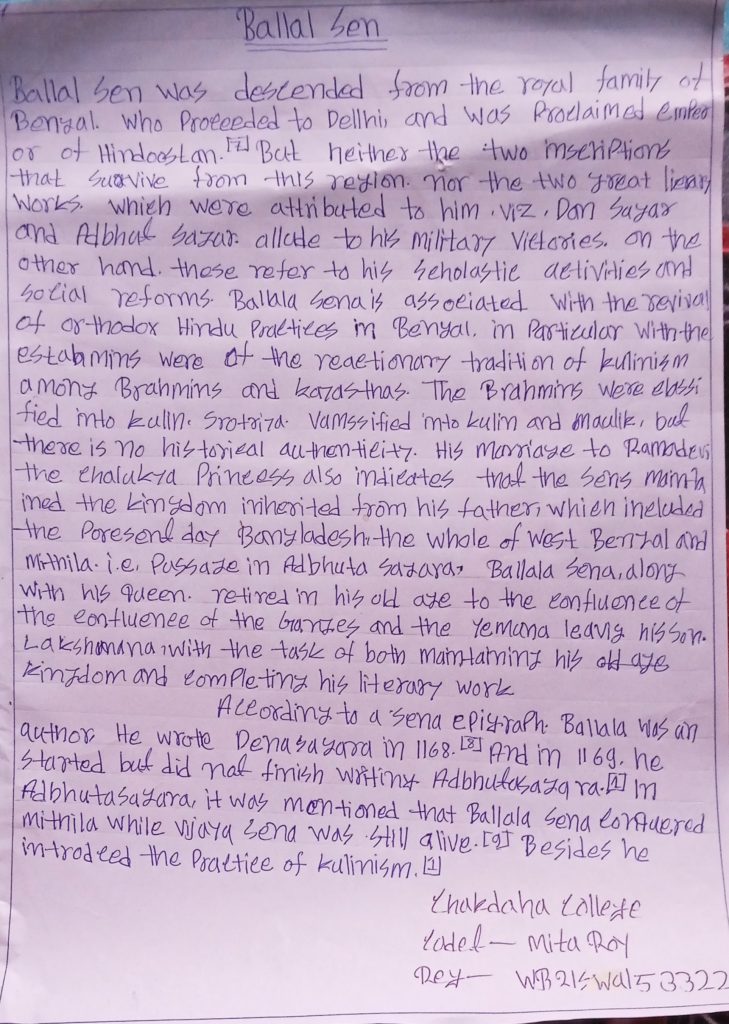 Ballal Sen
Ballal Sen was descended from the royal family of
Bengal. Who Proceeded to Dellhi, and was Proclaimed emper
or of Hindoostan.[7] But neither the two inscriptions
that survive from this region. nor the two great lierary
works. which were attributed to him, viz. Dan Sagar
and Adbhut Sagar. allude to his military victories. on the
other hand. these refer to his scholastic activities and
social reforms. Ballala Sena is associated with the revival
of orthodox Hindu Practices in Bengal, in Particular with the
estabmins were of the reactionary tradition of kulinism
among Brahmins and kayasthas. The Brahmins were classi
fied into kulin. Srotriya. Vamssified into kulin and Maulik, but
there is no historical authenticity. His marriage to Ramadevi
the chalukya Princess also indicates that the sens mainta
ined the kingdom inherited from his father, which included
the Poresend day Bangladesh, the whole of West Bengal and
Mithila. i.e. Passage in Adbhuta Sagara, Ballala Sena, along
with his queen. retired in his old age to the confluence of
the confluence of the Ganges and the Yemuna leavig his son.
Lakshmana, with the task of both maintaining his old age
kingdom and completing his literary work
According to a sena epigraph. Ballala was an
author. He wrote Denasagara in 1168.[8] And in 1169, he
started but did not finish writing Adbhutasagara.[1] In
Adbhutasagara, it was mentioned that Ballala Sena conquered
mithila while vijaya Sena was still alive.[9] Besides he
introdced the Practice of kulinism.[1]
Chakdaha College
Cadet — Mita Roy
Reg — WB21SWA153322